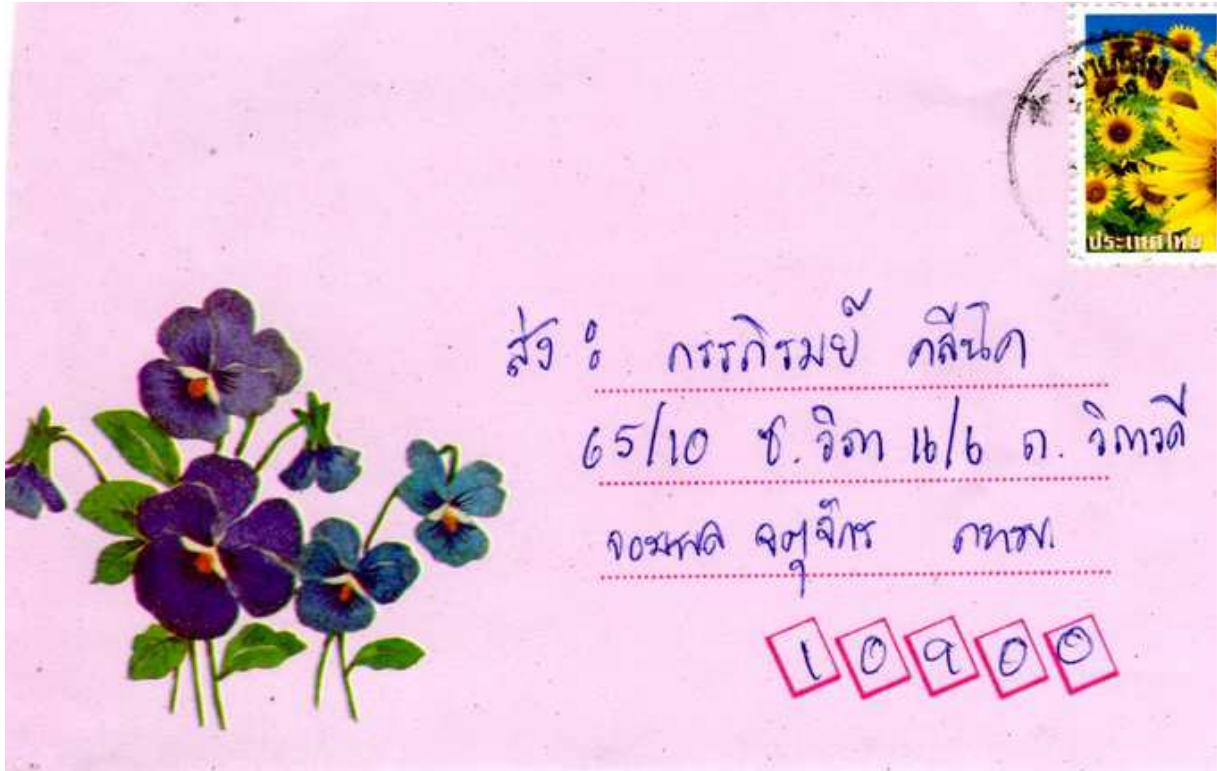 ประเทศไทย
ส่ง : กรรภิรมย์ คลีนิค
65/10 ซ.วิภา 16/6 ถ. วิภาวดี
จอมพล จตุจักร กทม.
10900